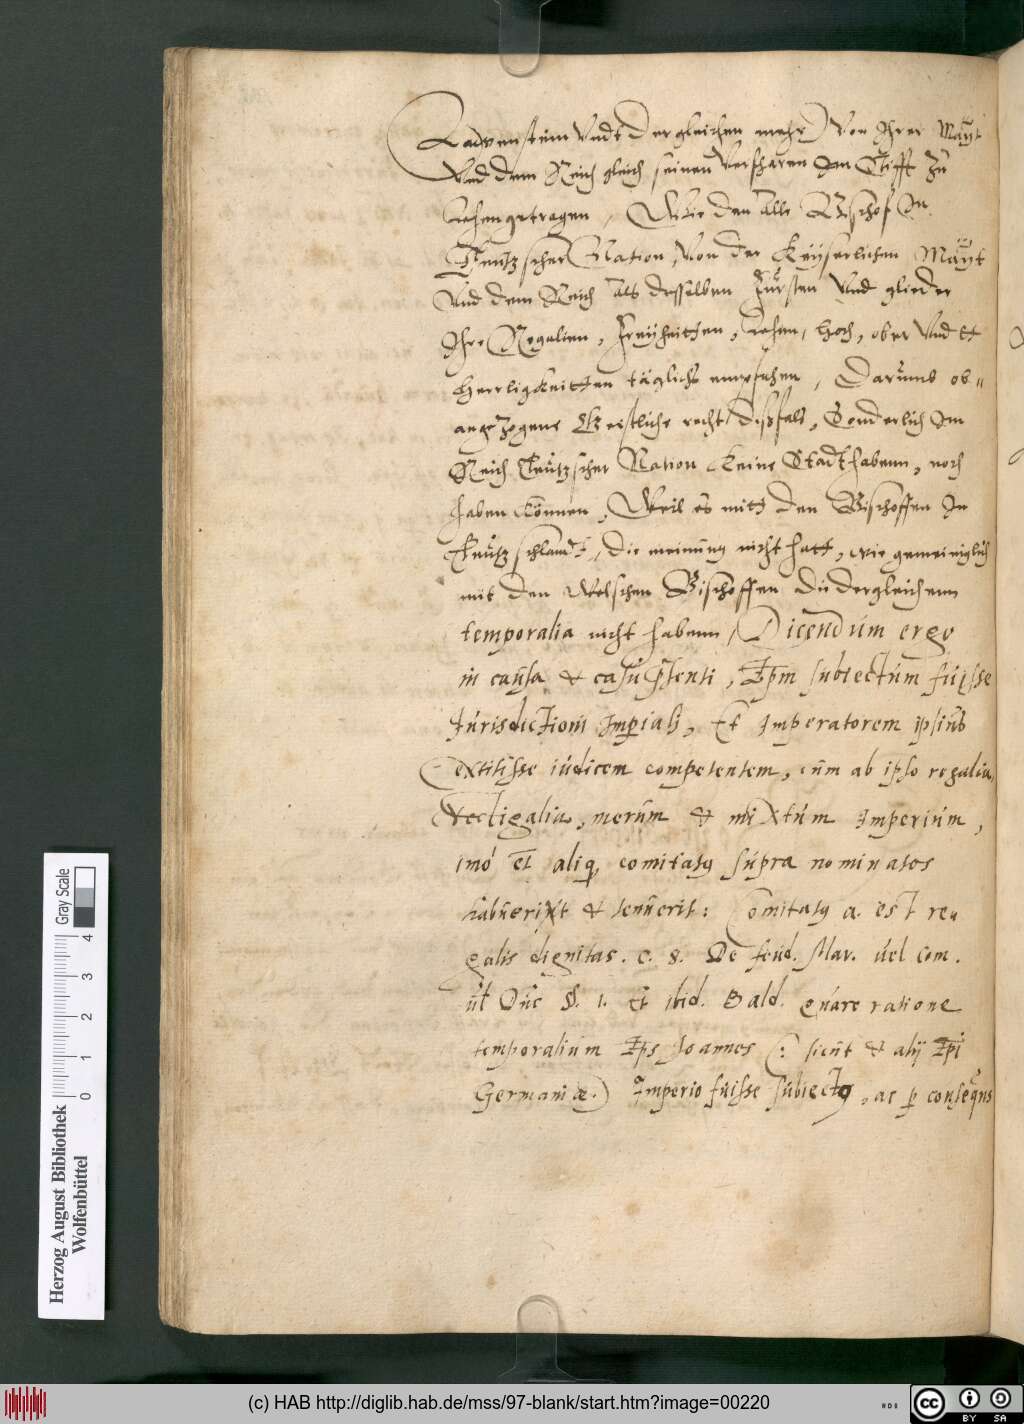 Lawenstein vndt dergleichen mehr) Von Ihrer Maÿt
Vnd dem Reich gleich seinen Vorfharen am Stifft zu
Lehen getragen, Wie den alle Bischof In
Teutzscher Nation, Von der Keÿserlichen Maÿt
Vnd dem Reich als desselben Fürsten Vnd glieder
Ihre Regalien, Freÿheitten, Lehen, hoch, ober Vnd
Herrligkeitten täglichs empfahen, Darumb ob-
angezogene Geistliche recht dißfals, Sonderlich Im
Reich Teutzscher Nation keine Stadt habenn, noch
haben können, Weil es mitt den Bischoffen In
Teutzschlandt, die meinung nicht hatt, wie gemeiniglich
mit den Welschen Bischoffen die dergleichenn
temporalia nicht habenn, Dicendum ergo
in causa & casu pñsenti, Epm subiectum fuisse
Iurisdictioni Imperiali, Et Imperatorem ipsius
extitisse iudicem competentem, cum ab ipso regalia,
Vectigalia, merum & mixtum Imperium,
imo et aliq, comitatus supra nominatos
habuerint & tenuerit: Comitatus a. est re-
galis dignitas. c. 8. De feud. Mar. vel com.
ut Duc §. 1. et ibid. Bald. quare ratione
temporalium Eps Joannes (: sicut & alij Epi
Germaniæ.) Imperio fuisse subiectus, ac p conseqns
Herzog August Bibliothek
Wolfenbüttel
Gray Scale
0 1 2 3 4
(c) HAB http://diglib.hab.de/mss/97-blank/start.htm?image=00220
cc BY SA